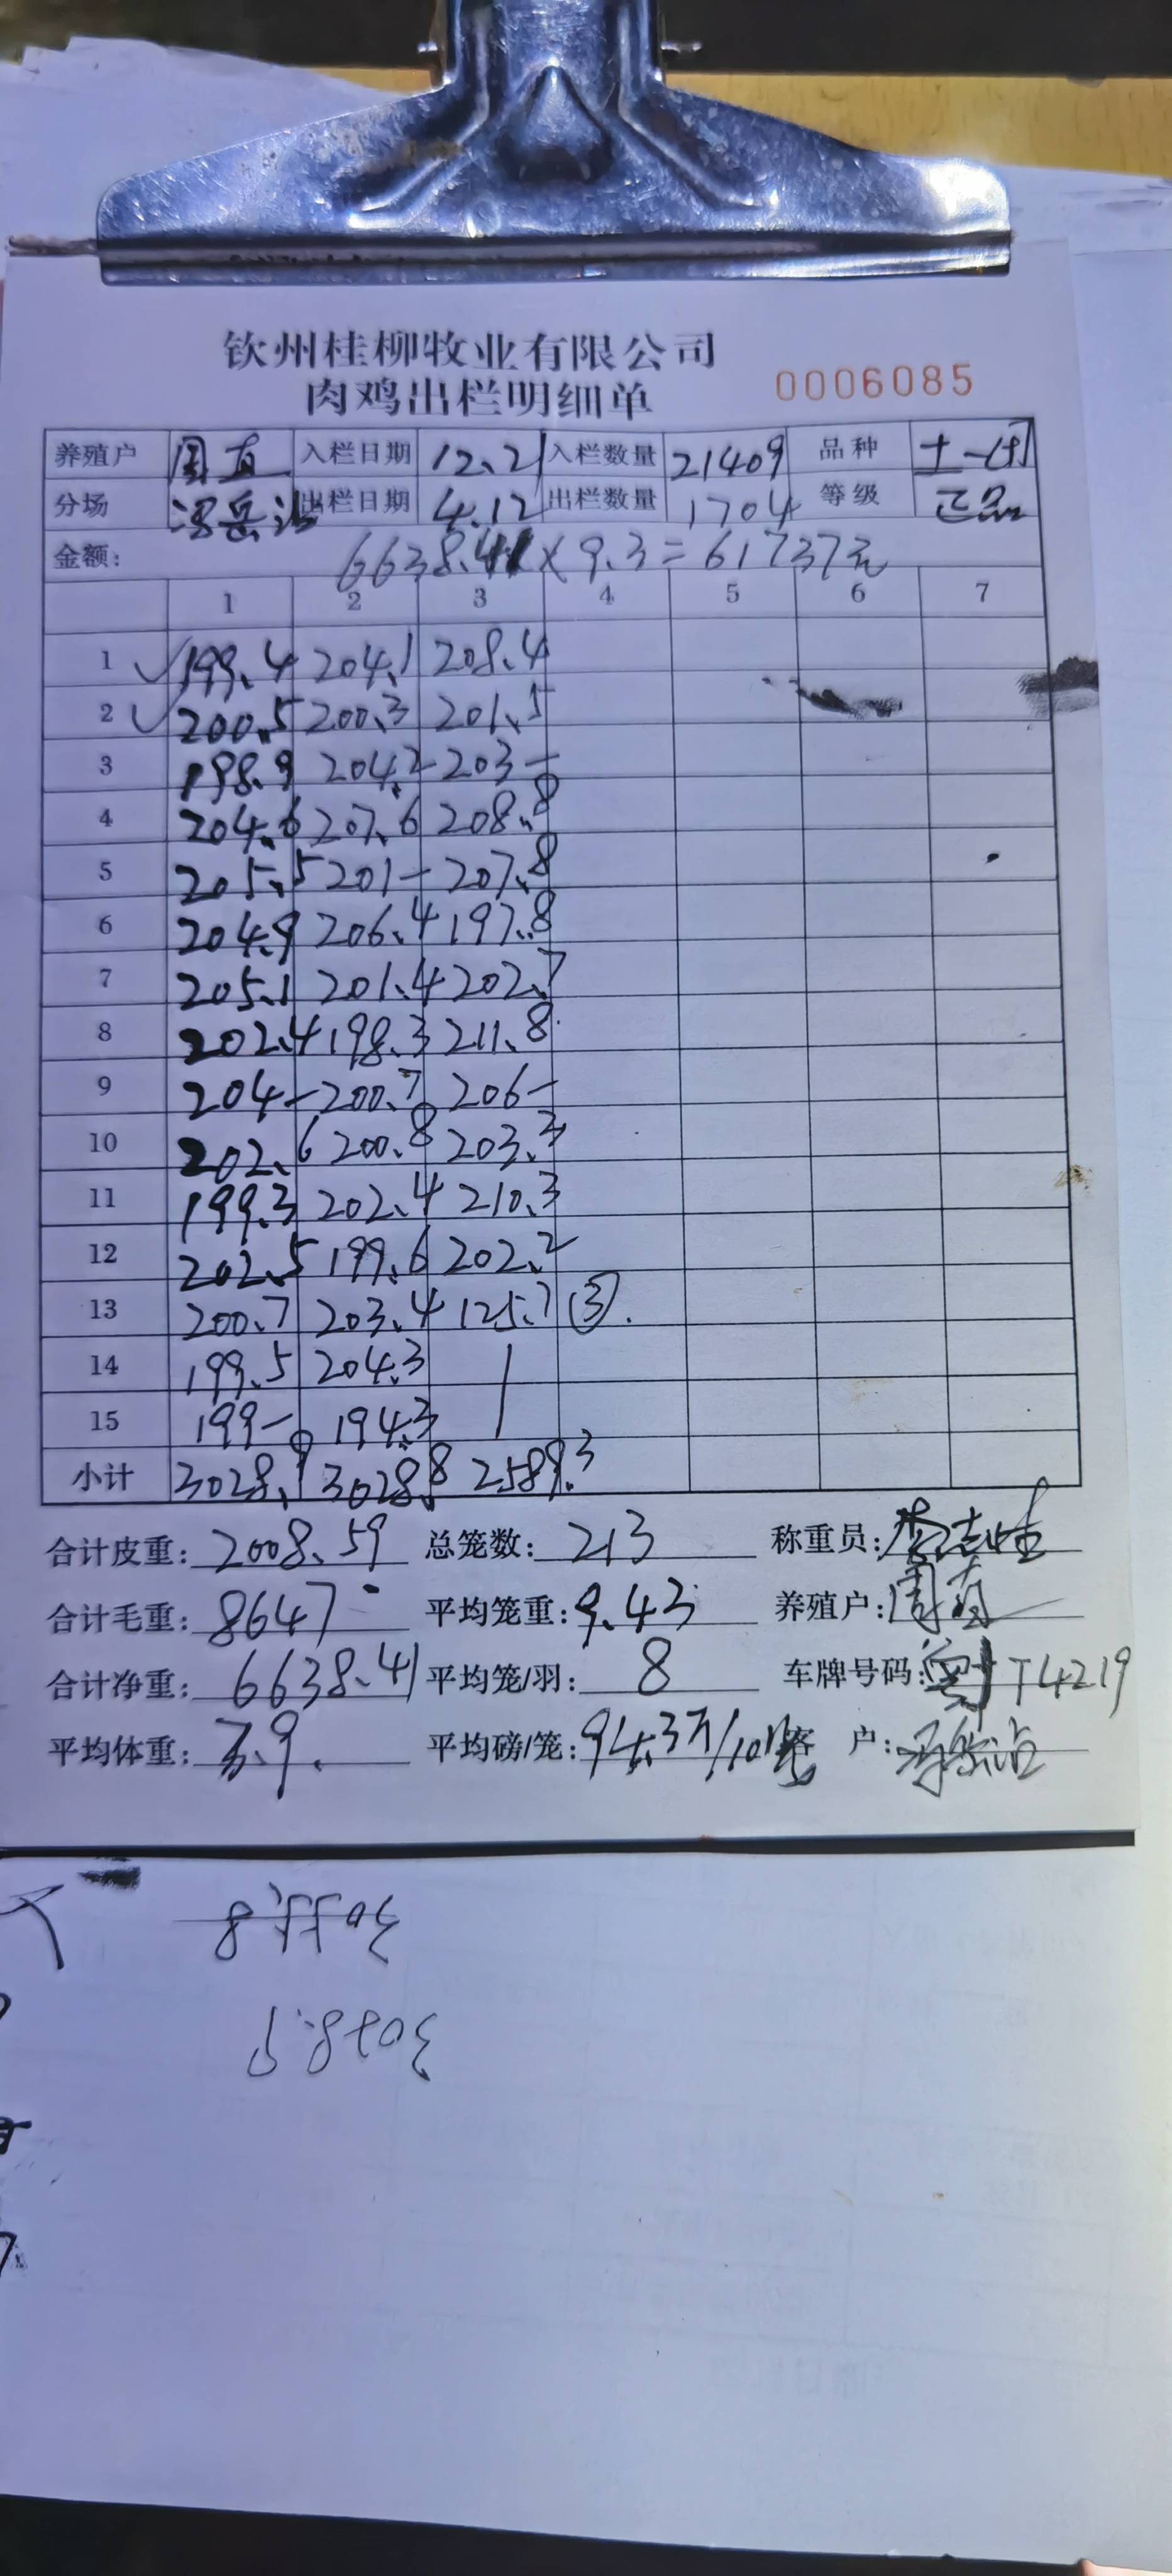 钦州桂柳牧业有限公司
肉鸡出栏明细单 0006085
养殖户 周直 入栏日期 12.21 入栏数量 21409 品种 土一
分场 出栏日期 4.12 出栏数量 1704 等级 正品
金额: 6638.41×9.3=61737元
1 2 3 4 5 6 7
1 199.4 204.1 208.4
2 200.5 200.3 201.5
3 198.9 204.2 203-
4 204.6 207.6 208.8
5 205.5 201- 207.8
6 204.9 206.4 197.8
7 205.1 201.4 202.7
8 202.4 198.3 211.8
9 204- 200.7 206-
10 202.6 200.8 203.3
11 199.3 202.4 210.3
12 202.5 199.6 202.2
13 200.7 203.4 125.7 ③.
14 199.5 204.3
15 199- 194.3
小计 3028.9 3028.8 2589.3
合计皮重: 2008.59 总笼数: 213 称重员:
合计毛重: 8647- 平均笼重: 9.43 养殖户:
合计净重: 6638.41 平均笼/羽: 8 车牌号码: 粤T4219
平均体重: 3.9. 平均磅/笼: 94.3斤/10笼 客 户: